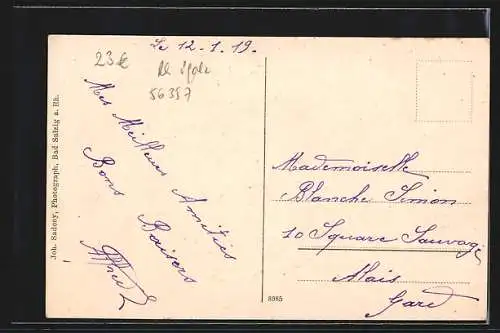 Le 12-1.19.
23€
56357
Mes Meilleurs Amitiés
Bons Baisers
Alfred
Mademoiselle
Blanche Simon
10 Square Sauvage
Alais
Gard
Joh. Sadony, Photograph, Bad Salzig a. Rh.
8985